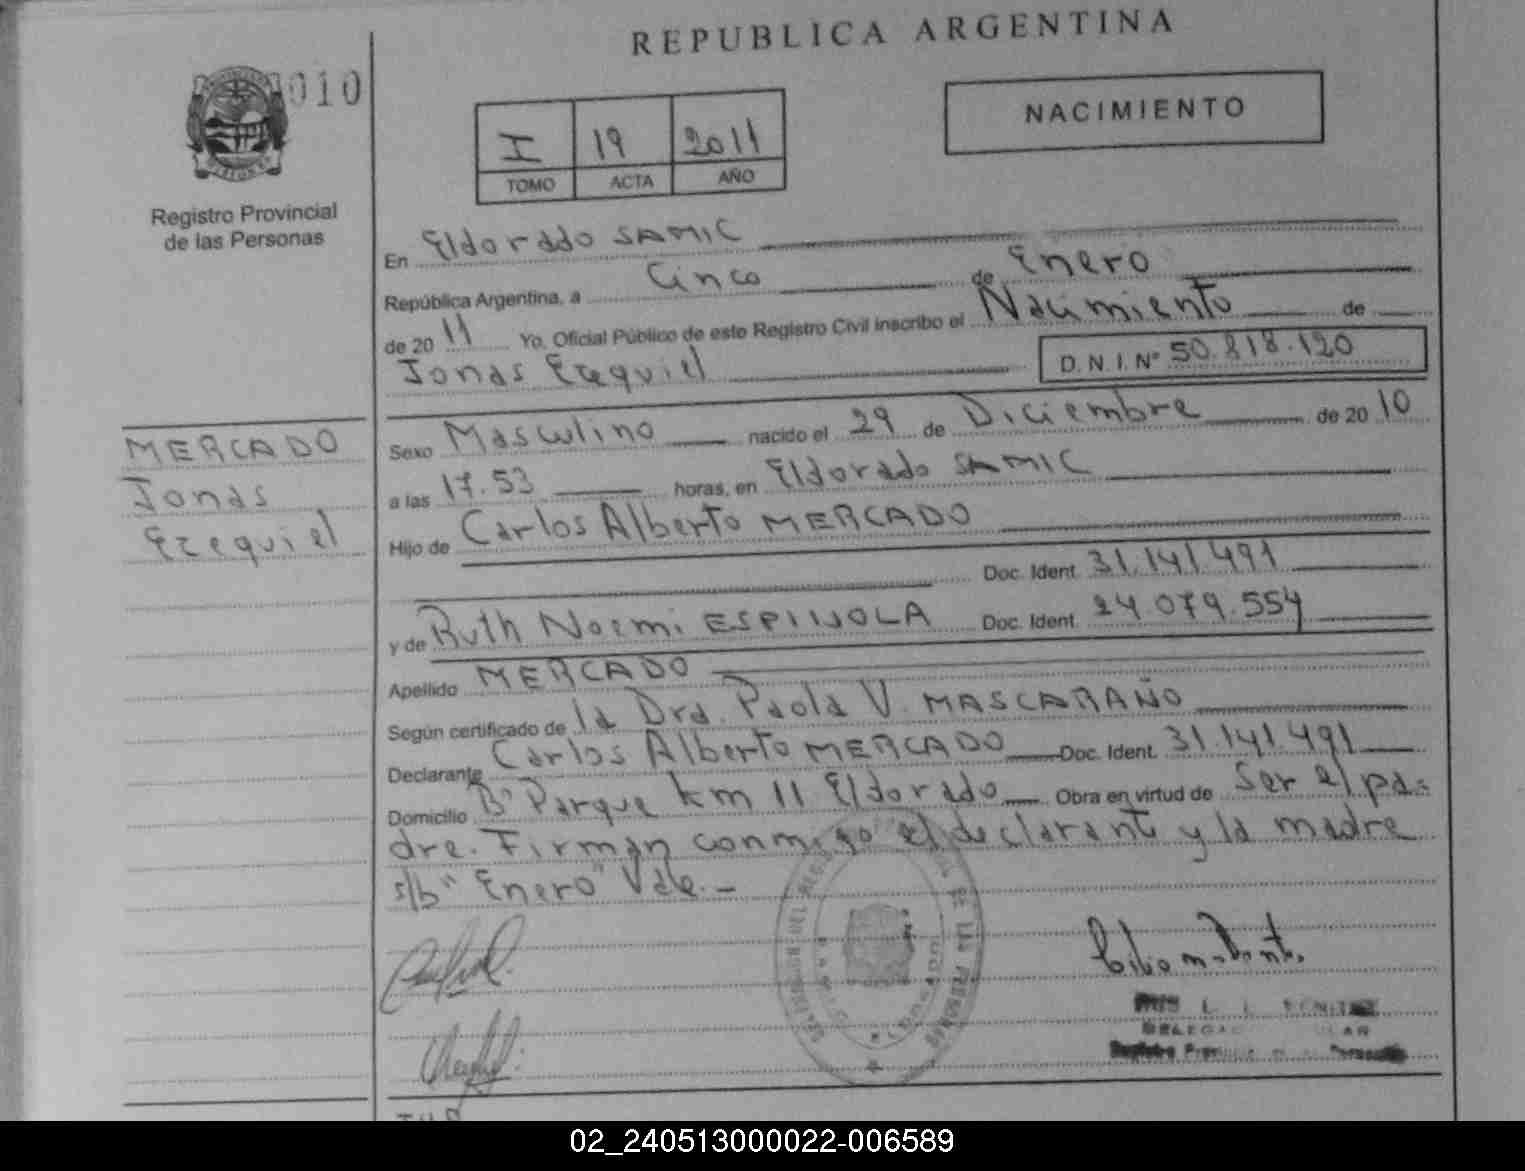 REPUBLICA ARGENTINA
010
I 19 2011
TOMO ACTA AÑO
NACIMIENTO
Registro Provincial
de las Personas
En Eldorado SAMIC
República Argentina, a Cinco de Enero
de 20 11 Yo, Oficial Público de este Registro Civil inscribo el Nacimiento de
Jonas Ezequiel D.N.I. Nº 50.818.120
MERCADO
Jonas
Ezequiel
Sexo Masculino nacido el 29 de Diciembre de 20 10
a las 17.53 horas, en Eldorado SAMIC
Hijo de Carlos Alberto MERCADO
Doc. Ident. 31.141.491
y de Ruth Noemi ESPINOLA Doc. Ident. 24.079.554
Apellido MERCADO
Según certificado de la Dra. Paola V. MASCARAÑO
Declarante Carlos Alberto MERCADO Doc. Ident. 31.141.491
Domicilio Bº Parque km 11 Eldorado Obra en virtud de Ser el pa=
dre. Firman conmigo el declarante y la madre
s/b "Enero" Vale.-
02_240513000022-006589